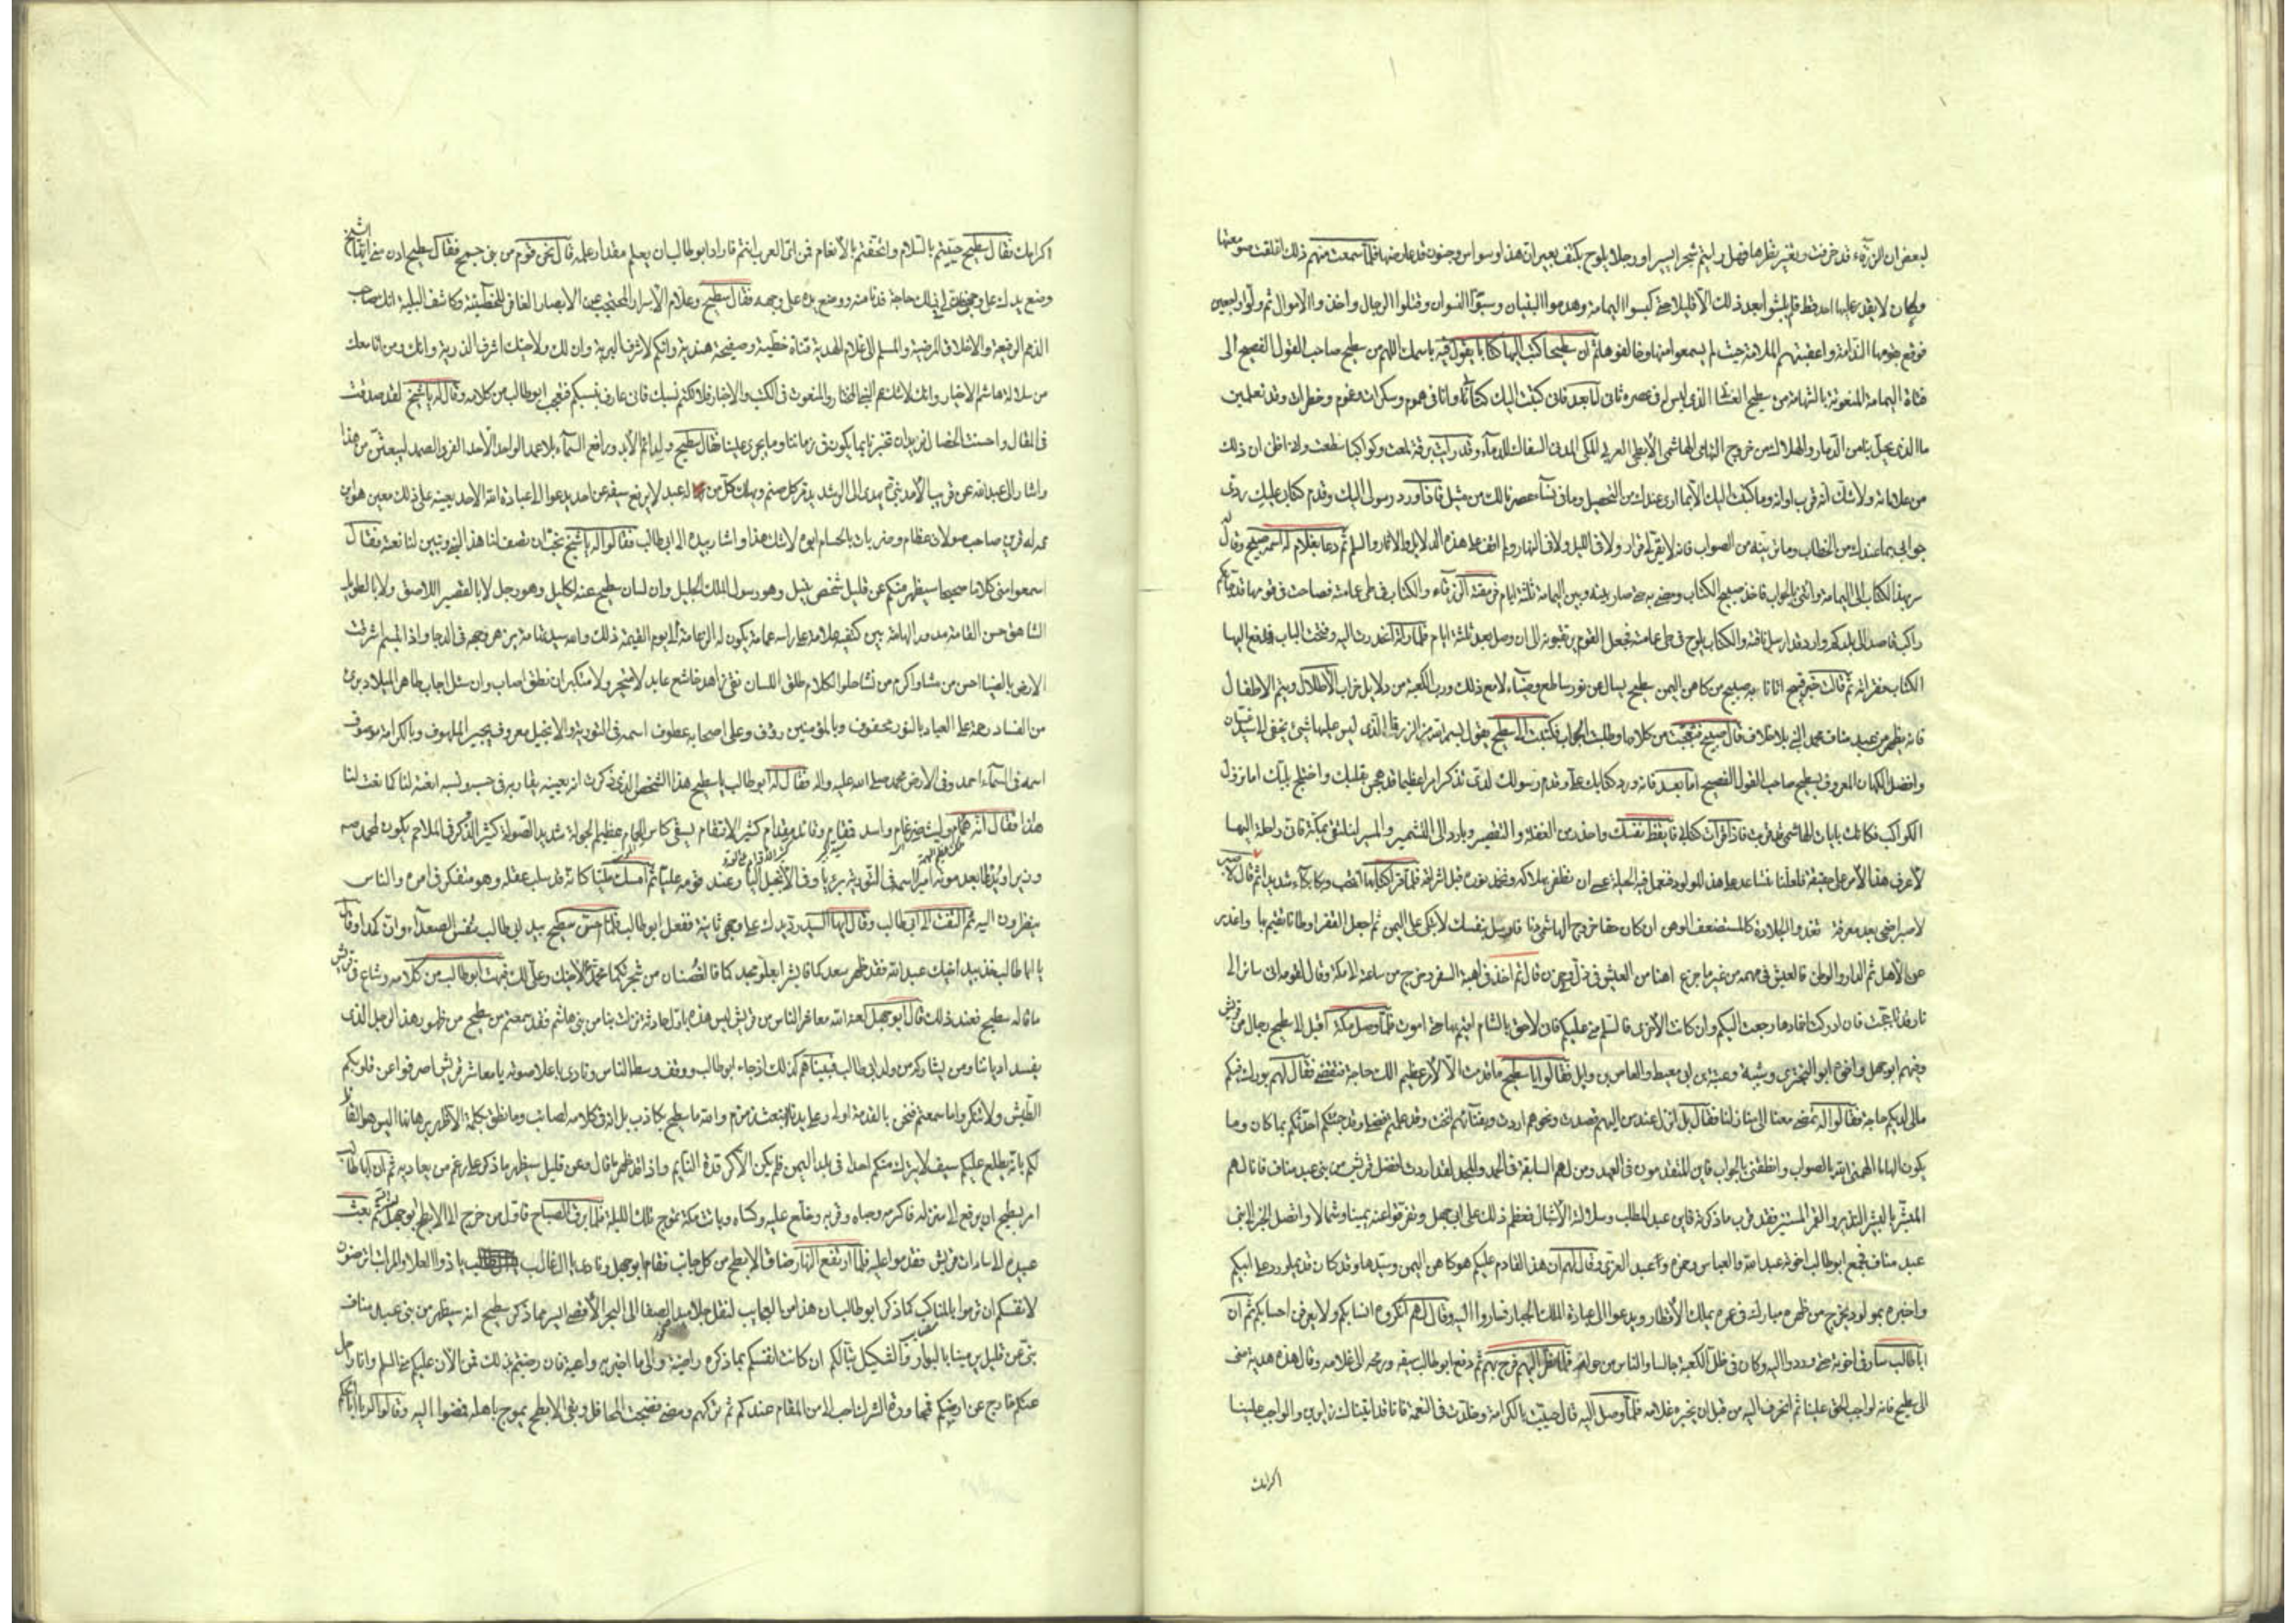 لبعض ان الزرقاء قد خرفت وتغير نظرها فهل رايتم شجرا يسير او رجلا يلوح بكتف بعير ان هذا وسواس وجنون قد عارضها فلما سمعت منهم ذلك اغلقت صومعتها
وكان لا يقدر عليها احد قط فلم يلبثوا بعد ذلك الا قليلا حتى كبسوا اليمامة وهدموا البنيان وسبوا النسوان وقتلوا الرجال واخذوا الاموال ثم ولوا راجعين
فوقع بقومها الندامة واعقبتهم الملامة حيث لم يسمعوا منها وخالفوها ثم ان سطيحا كتب اليها كتابا يقول فيه باسمك اللهم من سطيح صاحب القول الفصيح الى
فتاة اليمامة المنعوتة بالشهامة من سطيح الغساني الذي ليس له في عصره ثاني اما بعد فاني كتبت اليك كتابا وانا في هموم وسكرات وغموم وخطرات وقد تعلمين
ما الذي يحل بنا من الدمار والهلاك من خروج التهامي الهاشمي الابطحي العربي المكي المدني السفاك للدماء وقد رايت برقة لمعت وكواكبا سطعت وانا اظن ان ذلك
من علاماته ولا شك انه قرب اوانه وما كتبت اليك الا بما ارى عندك من التحصيل وما في نساء عصرنا لك من مثيل فاذا ورد رسولي اليك وقدم كتابي عليك ردي
جوابي بما عندك من الخطاب وما ترينه من الصواب فانه لا يقر لي قرار ولا في الليل ولا في النهار ولم اقف على هذه الدلايل والاثار والسلم ثم دعا بغلام له اسمه صبيح وقال له
سر بهذا الكتاب الى اليمامة واتني بالجواب فاخذ صبيح الكتاب ومضى به حتى صار بينه وبين اليمامة ثلثة ايام فرمقته الزرقاء والكتاب في طي عمامته فصاحت في قومها قد جاءكم
راكب قاصد الى بلدكم وارد قد ارسل ناقته والكتاب يلوح في طي عمامته فجعل القوم يرتقبونه الى ان وصل بعد ثلثة ايام فلما راته انحدرت اليه وفتحت الباب فدفع اليها
الكتاب فقراته ثم قالت خبر قبيح اتانا به صبيح من كاهن اليمن سطيح يسال عن نور ساطع وضياء لامع ذلك ورب الكعبة من دلايل خراب الاطلال ويتم الاطفال
فانه يظهر من عبد مناف محمد النبي بلا خلاف قال صبيح فتعجبت من كلامها وطلبت الجواب فكتبت الى سطيح يقول بسم الله من الزرقا الذي ليس عليها شيئ يخفى الى سيد غسان
وافضل الكهان المعروف بسطيح صاحب القول الفصيح اما بعد فانه ورد كتابك علي وقدم رسولك لدي تذكر امرا عظيما قد هجم بقلبك واختلج بلبك اما نزول
الكواكب فكانك بايات الهاشمي قد قربت فاذا قرات كتابي فايقظ نفسك واحذر من الغفلة والتقصير وبادر الى التشمير والمسير لنلتقي بمكة فاني راحلة اليها
لاعرف هذا الامر على حقيقة فلعلنا نتساعد على هذا المولود فنعمل فيه الحيلة عسى ان نظفر بهلاكه ونخمد نوره قبل اشراقه فلما قرا كتابها انتحب وبكا بكاء شديدا ثم قال
لا صبر اضحى بعد معرفة تغدو الجلادة كالمستضعف الوهن ان كان حقا خروج الهاشمي دنا فارحل بنفسك لا تبكي على اليمن ثم اجعل القفر اوطانا تقيم بها واغدر
عن الاهل ثم الدار والوطن فالعيش في مهمه من غير ما جزع اهنا من العيش في ذل وفي حزن قال ثم اخذ في اهبة السفر وخرج من ساعة الى مكة وقال لقومه اني سائر الى
نار قد تاججت فان ادركت اخمادها رجعت اليكم وان كانت الاخرى فالسلام مني عليكم فاني لاحق بالشام اقيم بها حتى اموت فلما وصل مكة اقبل الى سطيح رجال من قريش
وفيهم ابوجهل واخوه ابو البختري وشيبة وعتبة بن ابي معيط والعاص بن وايل فقالوا يا سطيح ما قدمت الا لامر عظيم الك حاجة فتقضى فقال لهم بورك فيكم
مالي لديكم حاجة فقالوا له تمضي معنا الى منازلنا فقال بل انزل عند من اليهم قصدت ونحوهم اردت وبفنائهم انخت وقد علمتم فضلي وقد جئتكم احدثكم بما كان وما
يكون الهاما الهمني الله بالصواب وانطقني بالجواب فاين المتقدمون في العهد ومن لهم السابقة في الحمد والمجد لقد اردت افضل قريش من بني عبد مناف فانا لهم
المبشر بالبشير النذير والقمر المستنير فقد قرب ما ذكرته فاين عبد المطلب وسلالته الاشبال فعظم ذلك على ابي جهل وتفرقوا عنه يمينا وشمالا واتصل الخبر الى بني
عبد مناف فجمع ابوطالب اخوته عبد الله والعباس وحمزة وعبد العزى وقال لهم ان هذا القادم عليكم هو كاهن اليمن وسيدها وقد كان قديما ورد على ابيكم
واخبره بمولود يخرج من ظهره مبارك في عمره يملك الاقطار ويدعوا الى عبادة الملك الجبار فساروا اليه وقال لهم انكروه انسابكم ولا يعرف احسابكم ثم ان
اباطالب سار في اخوته حتى وردوا اليه وكان في ظل الكعبة جالسا والناس من حوله فلما نظر اليهم فرح بهم ثم دفع ابوطالب سيفه ورمحه الى غلامه وقال هذه هدية مني
الى سطيح فانه لواجب الحق علينا ثم انحرف اليه من قبل ان يخبره غلامه فلما وصل اليه قال حييت بالكرامة وخلدت في النعمة فانا قد اتيناك زايرين والواجب علينا
اكرامك
اكرامك فقال سطيح حييتم بالسلام واتحفتم بالانعام فمن اي العرب انتم فاراد ابوطالب ان يعلم مقدار علمه قال نحن قوم من بني جمح فقال سطيح ادن مني ايها الشيخ
وضع يدك على وجهي فان لي اليك حاجة فدنا منه ووضع يده على وجهه فقال سطيح وعلام الاسرار المحتجب عن الابصار الغافر للخطيئة وكاشف البلية انك صاحب
الذمم الرفيعة والاخلاق المرضية والمسلم الى غلامي الهدية قناة خطية وصفيحة هندية وانكم لاشرف البرية وان لك ولاخيك اشرف الذرية وانك ومن اتا معك
من سلالة هاشم الاخيار وانك لا شك عم النبي المختار والمنعوت في الكتب والاخبار فلا تكتم نسبك فاني عارف بنسبكم فتعجب ابوطالب من كلامه وقال له يا شيخ لقد صدقت
في المقال واحسنت الخصال نريد ان تخبرنا بما يكون في زماننا وما يجري علينا فقال سطيح والدايم الابد ورافع السماء بلا عمد الواحد الاحد الفرد الصمد ليبعثن من هذا
واشار الى عبد الله عن قريب الامد نبي يهدي الى الرشد يدمر كل صنم ويهلك كل من له عبد لا يرفع سيفه عن احد يدعوا الى عبادة الله الاحد يعينه على ذلك معين هو ابن
عمه له قرين صاحب صولات عظام وضربات بالحسام ابوه لا شك هذا واشار بيده الى ابي طالب فقالوا له يا شيخ نحب ان تصف لنا هذا النبي وتبين لنا نعته فقال
اسمعوا مني كلاما صحيحا سيظهر منكم عن قليل شخص نبيل وهو رسول الملك الجليل وان لسان سطيح عنه لكليل وهو رجل لا بالقصير اللاصق ولا بالطويل
الشاهق حسن القامة مدور الهامة بين كتفيه علامة على راسه عمامة يكون له الزعامة الى يوم القيمة ذلك والله سيد تهامة يزهر وجهه في الدجا واذا تبسم اشرقت
الارض بالضيا احسن من مشا واكرم من نشا حلو الكلام طلق اللسان نقي زاهد خاشع عابد لا متجبر ولا متكبر ان نطق اصاب وان سئل اجاب طاهر الميلاد بري
من الفساد رحمة على العباد بالنور محفوف وبالمؤمنين رؤف وعلى اصحابه عطوف اسمه في التورية والانجيل معروف يجير الملهوف وبالكرامة موصوف
اسمه في السماء احمد وفي الارض محمد صلى الله عليه واله فقال له ابو طالب يا سطيح هذا الشخص الذي ذكرت انه يعينه يقاربه في حسبه ونسبه انعته لنا كما نعت لنا
هذا فقال انه همام وليث ضرغام واسد قمقام وقائد مقدام كثير الانتقام يسقي كاس الحمام عظيم الجولة شديد الصولة كثير الذكر في الملاحم يكون لمحمد صه
وزيرا ويدعا بعد موته اميرا اسمه في التورية بريا وفي الانجيل اليا وعند قومه عليا ثم امسك مليا كانه قد سلب عقله وهو متفكر في امره والناس
ينظرون اليه ثم التفت الى ابي طالب وقال ايها السيد رد يدك على وجهي ثانية ففعل ابوطالب فلما احس سطيح بيد ابي طالب تنفس الصعداء وان كمدا وقال
يا اباطالب خذ بيد اخيك عبد الله فقد ظهر سعدكما فابشرا بعلو مجدكما فالغصنان من شجرتكما محمد لاخيك وعلي لك فبهت ابوطالب من كلامه وشاع في قريش
ما قاله سطيح فعند ذلك قال ابوجهل لعنه الله معاشر الناس من قريش ليس هذه باول حادثة نزلت بنا من بني هاشم فقد سمعتم من سطيح من ظهور هذا الرجل الذي
يفسد اديانا ومن يشاركه من ولد ابي طالب فبيناهم كذلك اذ جاء ابو طالب ووقف وسط الناس ونادى باعلا صوته يا معاشر قريش اصرفوا عن قلوبكم
الطيش ولا تنكروا ما سمعتم فنحن بالقدمة اولى وعلى يدنا نبعت زمزم والله ما سطيح بكاذب بل انه في كلامه لصائب وما نطق بكلمة الا ظهر برهانها اليس هو القائل
لكم بانه يطلع عليكم سيف لا يترك منكم احدا في بلد اليمن فلم يكن الا كرقدة النايم واذا قد ظهر ما قال وعن قليل سيظهر ما ذكر على رغم من يعاديه ثم ان اباطالب
امر بسطيح ان يرفع الى منزله فاكرمه وحباه وقربه وخلع عليه وكساه وباتت مكة تموج تلك الليلة فلما برق الصباح فاول من خرج الى الابطح ابوجهل ثم بعث
عبيده الى سادات قريش فقدموا عليه فلما ارتفع النهار ضاق الابطح من كل جانب فقام ابوجهل ونادى يا ال غالب يا ذوا العلا والمراتب اترضون
لانفسكم ان ترموا بالمناكب كما ذكر ابو طالب ان هذا من العجايب لنقل جلاميد الصفا الى البحر الاقصى ايسر مما ذكر سطيح انه سيظهر من بني عبد مناف
نبي عن قليل يرمينا بالبوار والتنكيل تبا لكم ان كانت انفسكم بما ذكره راضية والى ما اخبر به واعية فان رضيتم بذلك فمن الان عليكم مني السلم وانا راحل
عنكم خارج عن ارضكم فمجاورة الترك احب الى من المقام عندكم ثم تركهم ومضى فضجت المحافل وبقي الابطح يموج باهله فمضوا اليه وقالوا له يا ابا الحكم